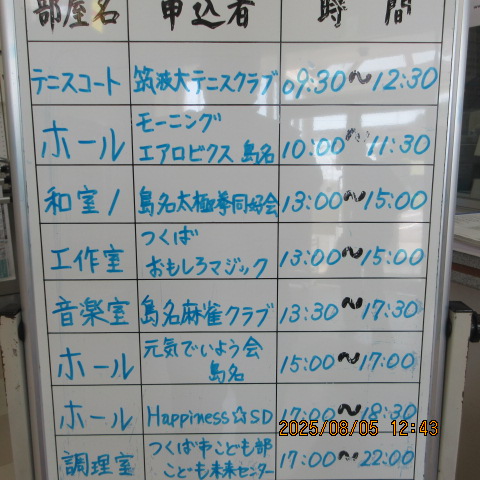 部屋名 申込者 時間
テニスコート 筑波大テニスクラブ 09:30〜12:30
ホール モーニング
エアロビクス 島名 10:00〜11:30
和室1 島名太極拳同好会 13:00〜15:00
工作室 つくば
おもしろマジック 13:00〜15:00
音楽室 島名麻雀クラブ 13:30〜17:30
ホール 元気でいよう会
島名 15:00〜17:00
ホール Happiness☆SD 17:00〜18:30
2025/08/05 12:43
調理室 つくば市こども部
こども未来センター 17:00〜22:00